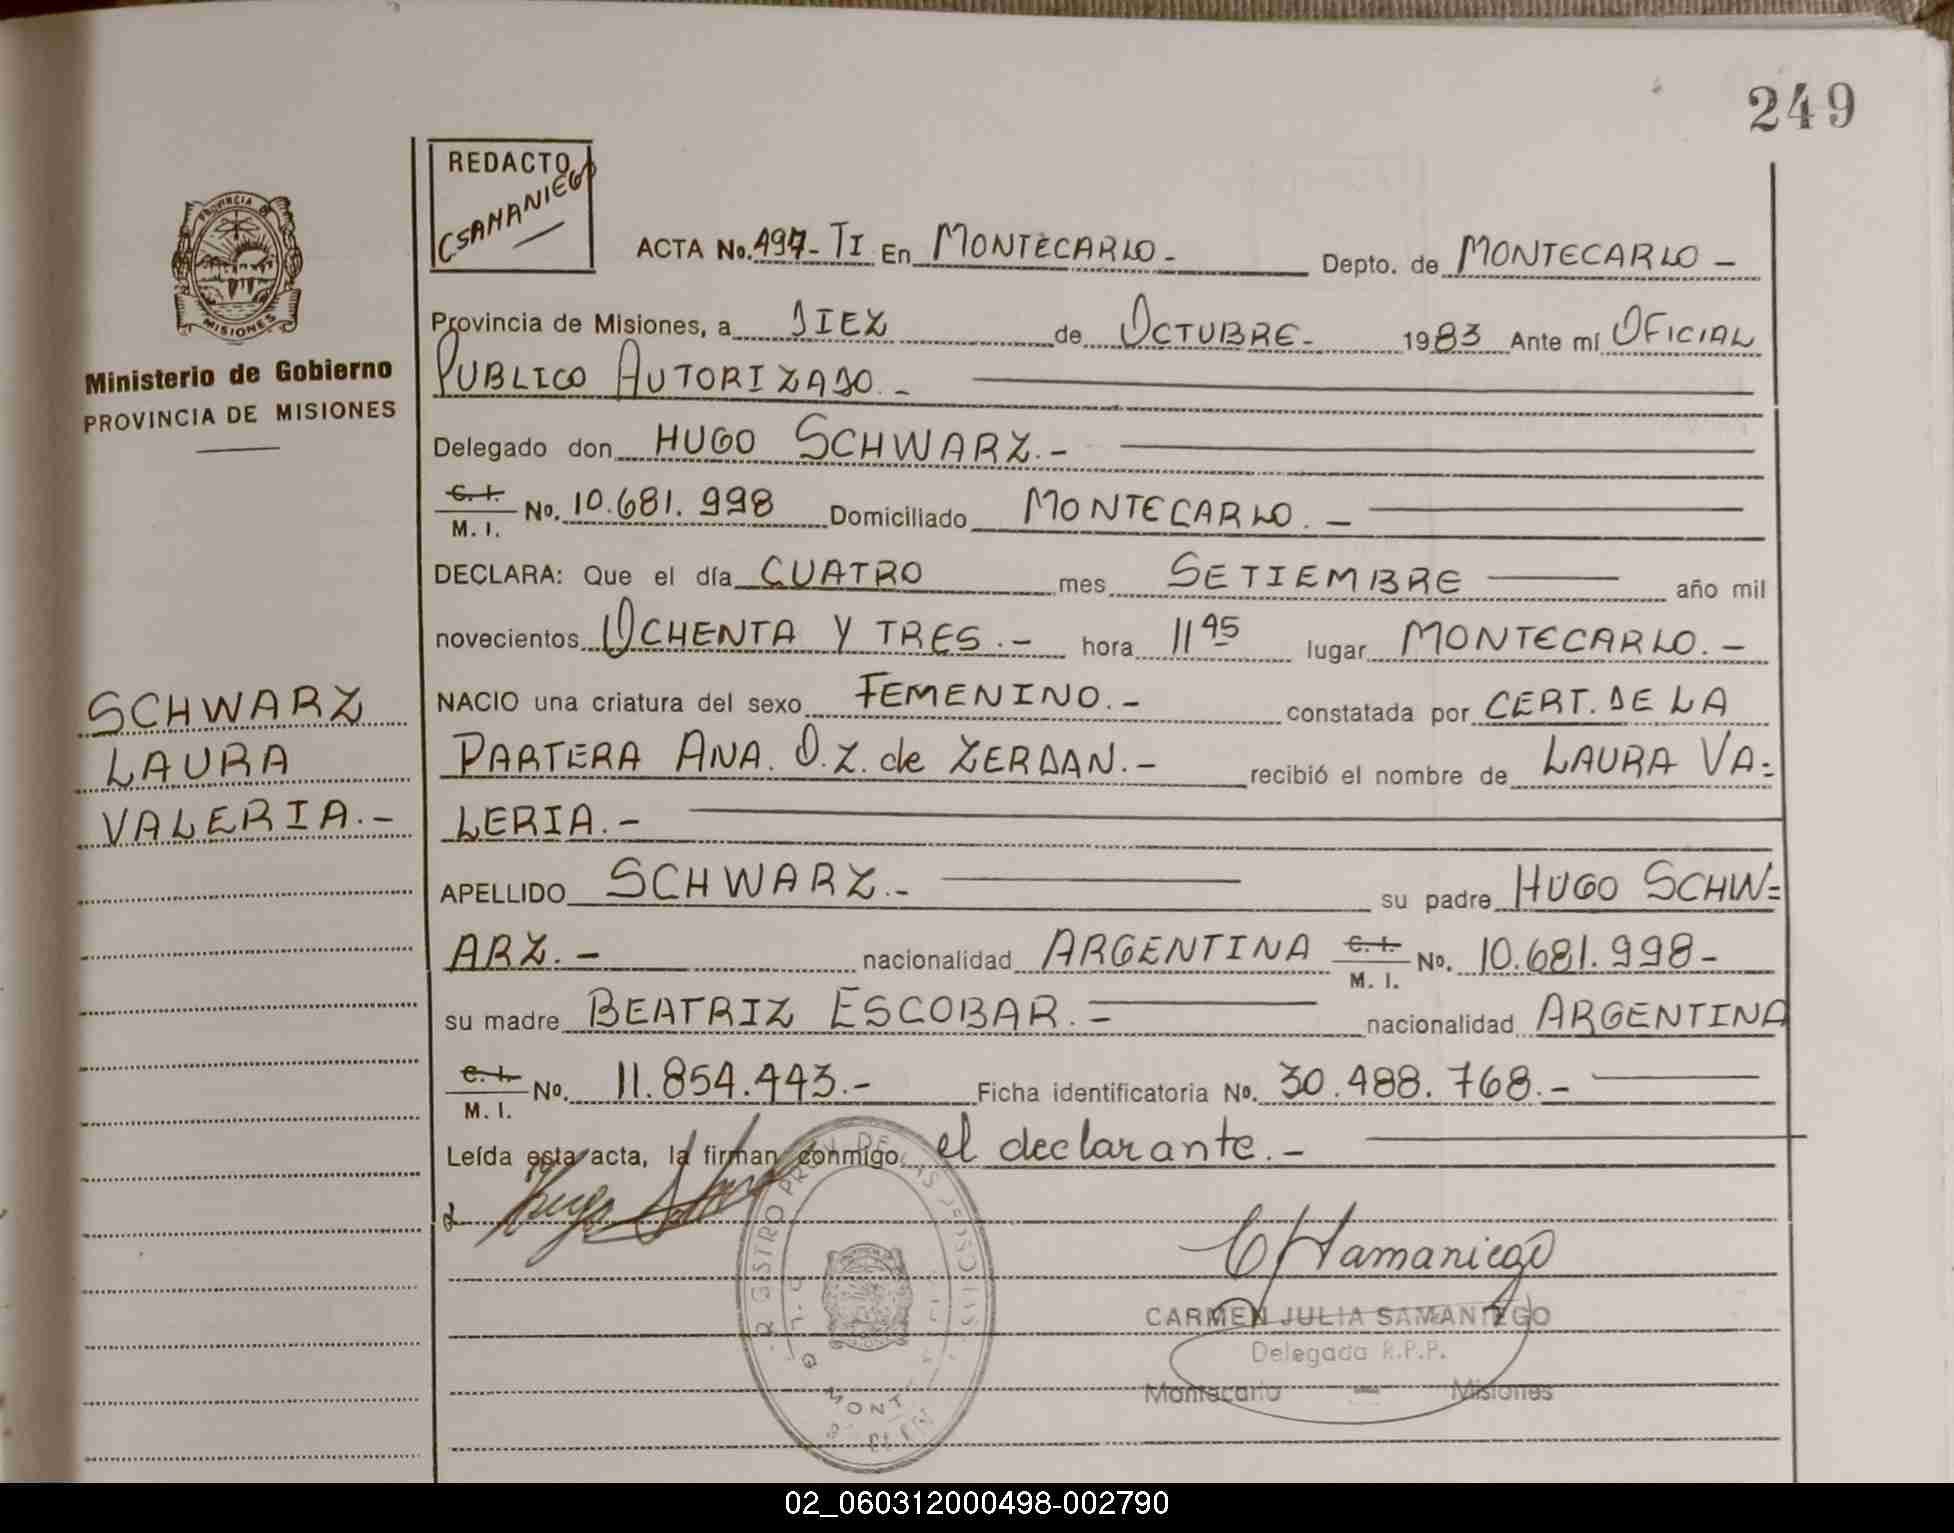 249
REDACTO
CSAMANIEGO
PROVINCIA DE
MISIONES
Ministerio de Gobierno
PROVINCIA DE MISIONES
ACTA No. 497- TI En MONTECARLO - Depto. de MONTECARLO -
Provincia de Misiones, a DIEZ de OCTUBRE - 1983 Ante mí OFICIAL
PUBLICO AUTORIZADO. -
Delegado don HUGO SCHWARZ. -
C. I. / M. I. No. 10.681.998 Domiciliado MONTECARLO. -
DECLARA: Que el día CUATRO mes SETIEMBRE año mil
novecientos OCHENTA Y TRES. - hora 11 45 lugar MONTECARLO. -
NACIO una criatura del sexo FEMENINO. - constatada por CERT. DE LA
PARTERA ANA. O. Z. de ZERDAN. - recibió el nombre de LAURA VA=
LERIA. -
APELLIDO SCHWARZ. - su padre HUGO SCHW=
ARZ. - nacionalidad ARGENTINA C. I. / M. I. No. 10.681.998 -
su madre BEATRIZ ESCOBAR. - nacionalidad ARGENTINA
C. I. / M. I. No. 11.854.443. - Ficha identificatoria No. 30.488.768. -
Leída esta acta, la firman conmigo el declarante. -
SCHWARZ
LAURA
VALERIA. -
Hugo
CSamaniego
CARMEN JULIA SAMANIEGO
Delegada R.P.P.
Montecarlo — Misiones
02_060312000498-002790